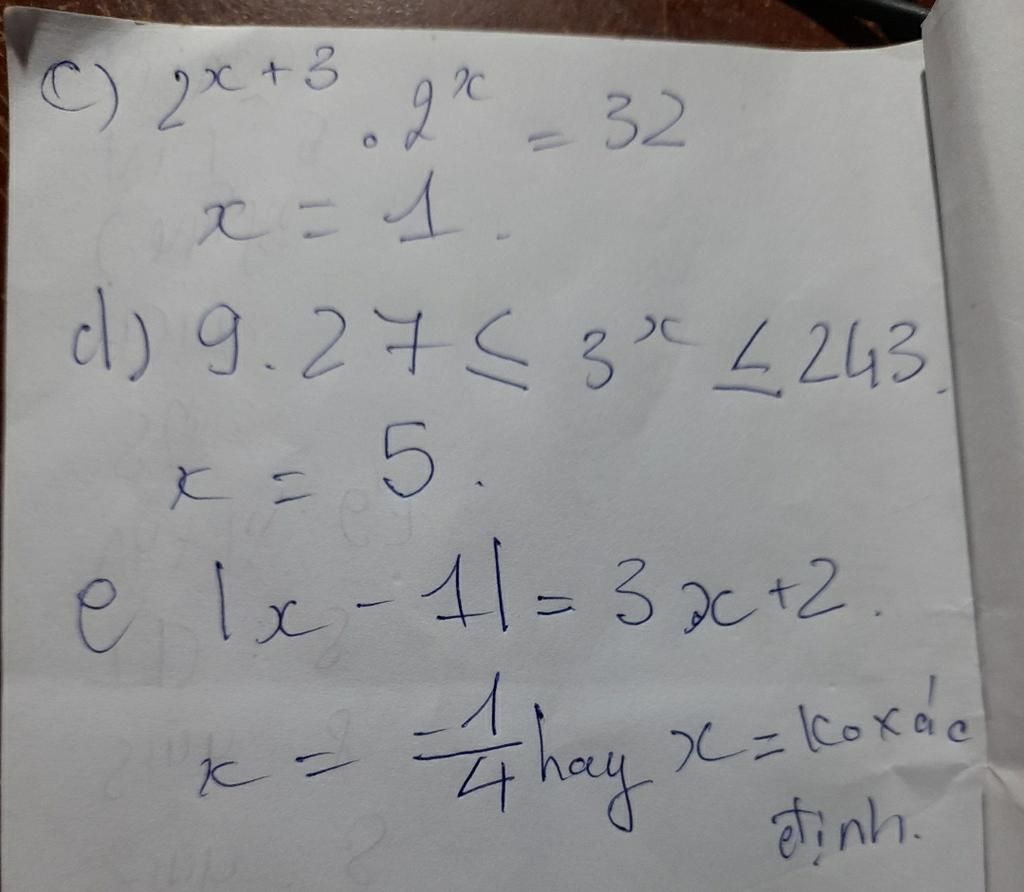 c) 2^{x+3} . 2^x = 32
x = 1.
d) 9.27 ≤ 3^x ≤ 243.
x = 5.
e |x - 1| = 3x+2.
x = \frac{-1}{4} hay x = ko xác
định.